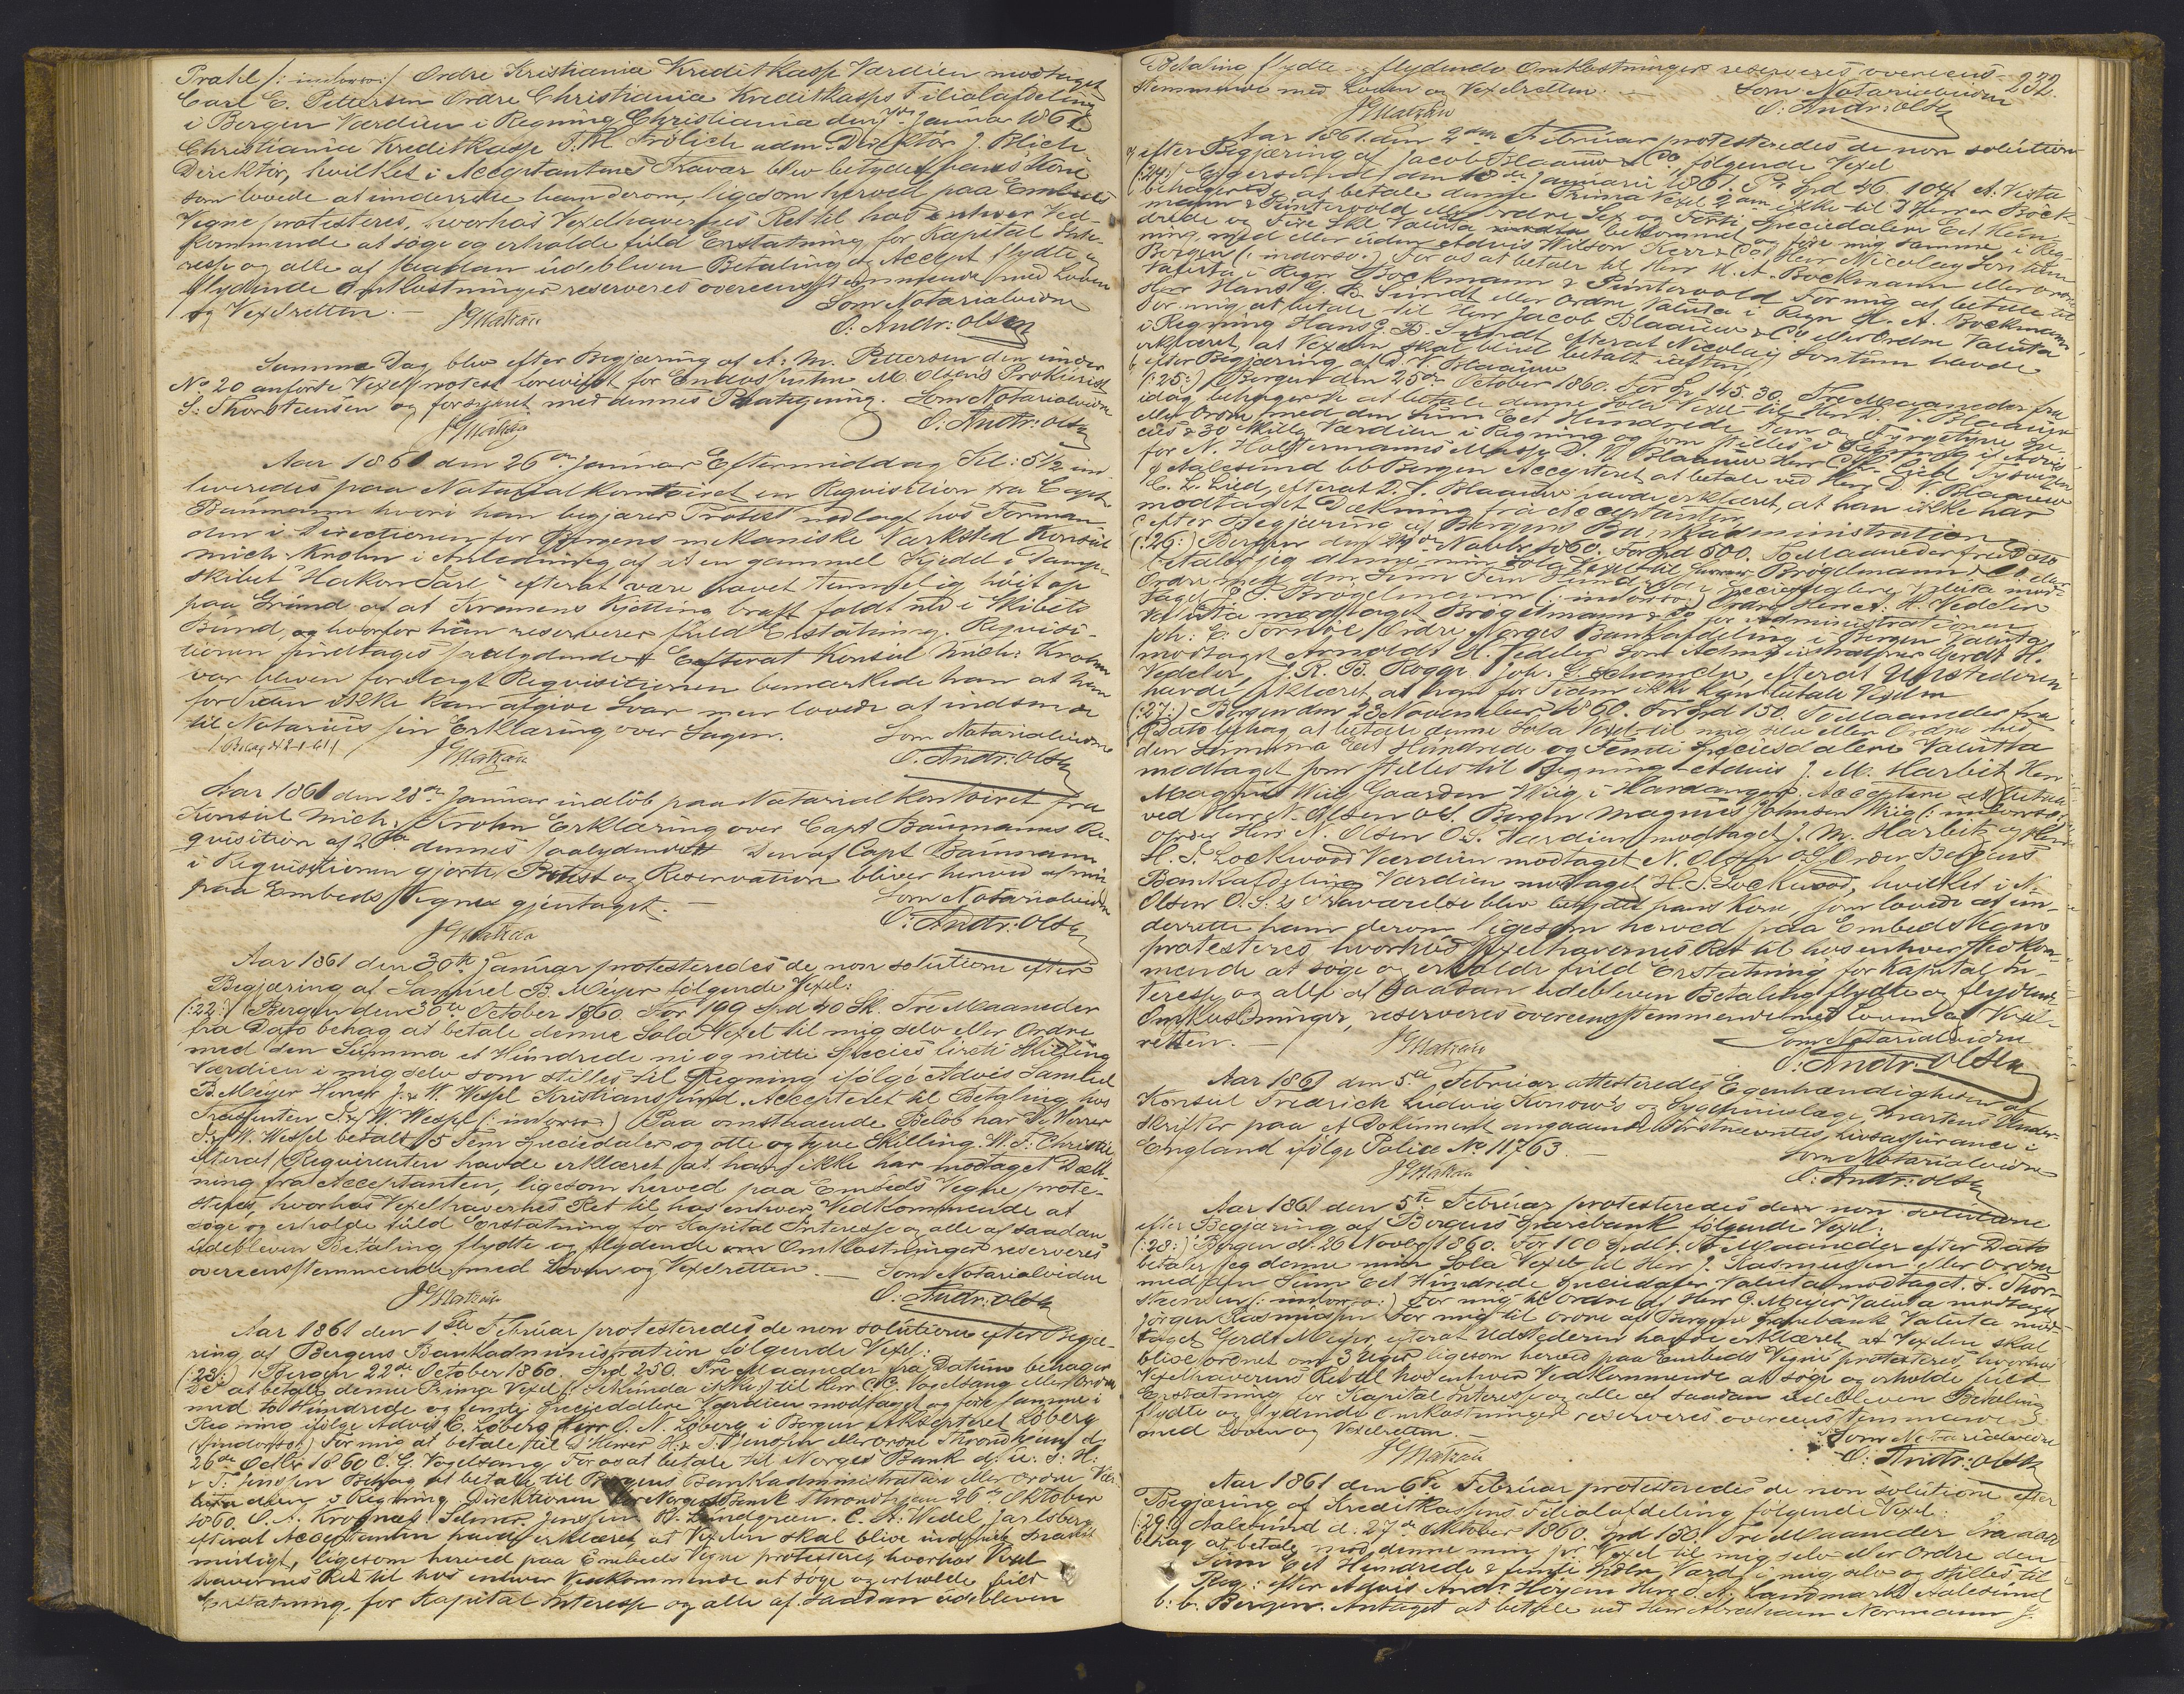 Prahl /: indorso:/ Ordre Kristiania Kreditkasse Værdien modtaget
Carl E. Pettersen Ordre Christiania Kreditkasses Filialafdeling
i Bergen Værdien i Regning Christiania den Januar 1861
Christiania Kreditkasse F. H. Frølich adm. Direktør J. Blich
Direktør, hvilket i Acceptantens Fravær blev betydet hans Kone
som lovede at underrette ham derom, ligesom herved paa Embeds
Vegne protesteres, hvorhos Vexelhavernes Ret til hos enhver Ved-
kommende at søge og erholde fuld Erstatning for Kapital Inte-
resse og alle af saadan udebleven Betaling & Accept flydte og
flydende Omkostninger reserveres overeensstemmende med Loven
og Vexelretten. — Som Notarialvidne
JGMatzau O: Andr: Olsen
Samme Dag blev efter Begjæring af A. M. Pettersen den under
No 20 anførte Vexelprotest forevist for Endossenten M. Olsens Prokurist
S. Thorsteensen og forsynet med dennes Paategning. Som Notarialvidne
JGMatzau O: Andr: Olsen
Aar 1861 den 26de Januar Eftermiddag Kl: 5 1/2 ind
leveredes paa Notarialkontoiret en Requisition fra Capt
Baumann hvori han begjærer Protest nedlagt hos Forman-
den i Directionen for Bergens mekaniske Værksted Konsul
Mich: Krohn i Anledning af at en gammel Kjedel i Damp-
skibet "Hakon Jarl" efterat være hævet temmelig høit op
paa Grund af at Kranens Kjetting brast faldt ned i Skibets
Bund, og hvorfor han reserverer fuld Erstatning. Requisi-
tionen saalydende Efterat Konsul Mich: Krohn
var bleven forelagt Requisitionen bemærkede han at han
for Tiden ikke kan afgive Svar men lovede at indsende
til Notarius sin Erklæring over Sagen. Som Notarialvidne
JGMatzau O. Andr: Olsen
Aar 1861 den 28de Januar indløb paa Notarialkontoiret fra
Konsul Mich: Krohn Erklæring over Capt Baumanns Re-
quisition af 26de dennes saalydende Den af Capt Baumann
i Requisitionen gjorte Protest og Reservation bliver herved af mig
paa Embeds Vegne gjentaget. — Som Notarialvidne
JGMatzau O: Andr: Olsen
Aar 1861 den 30te Januar protesteredes de non solutione efter
Begjæring af Samuel B. Meyer følgende Vexel:
(:22:) Bergen den 30te October 1860. For 199 Spd 40 Sk. Tre Maaneder
fra Dato behag at betale denne Sola Vexel til mig selv eller Ordre
med den Summa et Hundrede ni og nitti Species fireti Skilling
Værdien i mig selv som stilles til Regning ifølge Advis Samuel
B. Meyer Herrer J. & W. Wessel Kristianssund. Accepteret til Betaling hos
Trassenten J. & W. Wessel (: indorso :) Paa omstaaende Beløb har D'Herrer
J. & W. Wessel betalt 5 Fem Speciedaler og otte og tyve Skilling. W. F. Christie,
efterat Requirenten havde erklæret at han ikke har modtaget Dæk-
ning fra Acceptanten, ligesom herved paa Embeds Vegne prote-
steres, hvorhos Vexelhavernes Ret til hos enhver Vedkommende at
søge og erholde fuld Erstatning for Kapital Interesse og alle af saadan
udebleven Betaling flydte og flydende Omkostninger reserveres
overeensstemmende med Loven og Vexelretten. — Som Notarialvidne
JGMatzau O: Andr: Olsen
Aar 1861 den 1ste Februar protesteredes de non solutione efter Begjæ-
ring af Bergens Bankadministration følgende Vexel:
(:23:) Bergen 22de October 1860. Spd 250. Tre Maaneder fra Datum behager
De at betale denne Prima Vexel (: Sekunda ikke :) til Herr C. G. Vogelsang eller Ordre
med to Hundrede og femti Speciedalere Værdien modtaget og føre samme i
Regning ifølge Advis E. Loberg Herr O. N. Loberg i Bergen Accepteret Loberg
(: indorso :) For mig at betale til D'Herrer H. & F. Jenssen eller Ordre Throndhjem d.
26de Octbr 1860 C. G. Vogelsang For os at betale til Norges Bank d. u. s. H.
& F. Jenssen Behag at betale til Bergens Bankadministration eller Ordre
i Regning Direktionen for Norges Bank Throndhjem 26de Oktober
1860. O. A. Krognæs Selmer Jenssen H. Lundgreen. C. A. Wedel Jarlsberg
efterat Acceptanten havde erklæret at Vexelen skal blive indfriet snarest
muligt, ligesom herved paa Embeds Vegne protesteres, hvorhos Vexel
havernes Ret til hos enhver Vedkommende at søge og erholde fuld
Erstatning for Kapital Interesse og alle af saadan udebleven
232.
Betaling flydte og flydende Omkostninger reserveres overeens-
stemmende med Loven og Vexelretten. — Som Notarialvidne
JGMatzau O: Andr: Olsen
Aar 1861 den 2den Februar protesteredes de non solutione
a efter Begjæring af Jacob Blaauw & Co følgende Vexel
(:24:) Egersund den 18de Januari 1861. Pr Spd 46. 104 s. A. Vista
behager De at betale denne Prima Vexel 2den ikke til D'Herrer Bock-
mann & Puntervold eller Ordre Sex og Førti Speciedaler Eet Hun-
drede og Fire Skl. Valuta bekommet og føre mig samme i Reg-
ning med eller uden Advis Wilson Kerr & Co Herr Nicolay Sontum
Bergen (: indorso :) For os at betale til Herr H. A. Bockmann eller Ordre
Valuta i Regn Bockmann & Puntervold For mig at betale til
Herr Hans G. B. Sundt eller Ordre Valuta i Regn H. A. Bockmann
For mig at betale til Herr Jacob Blaauw & Co eller Ordre Valuta
i Regning Hans G. B. Sundt, efterat Nicolay Sontum havde
erklæret, at Vexelen skal blive betalt i aften.
b efter Begjæring af D. V. Blaauw
(:25:) Bergen den 25de October 1860. For Sp 145. 30. Tre Maaneder fra
idag behager De at betale denne Sola Vexel til Herr D. V. Blaauw
eller Ordre med den Sum Eet Hundrede Fem og Fyrgetyve Spe-
cies & 30 Skillg Værdien i Regning og som stilles i Regning if Advis
for N. Holtermanns Masse D. V. Blaauw Herr C. L. Lied Tysvigen
p Aalesund bb Bergen Accepteret at betale ved Herr D. V. Blaauw
C. L. Lied, efterat D. V. Blaauw havde erklæret, at han ikke har
modtaget Dækning fra Acceptanten
c efter Begjæring af Bergens Bankadministration
(:26:) Bergen den 24de Novbr 1860. For Spd 500. To Maaneder fra Dato
betaler jeg denne min Sola Vexel til Herrer Brøgelmann & Co eller
Ordre med den Sum Fem Hundrede Speciesdalere Valuta mod-
taget C. F. Brøgelmann (: indorso :) Ordre Herr A. H. Vedeler
Valuta modtaget Brøgelmann & Co for Administrationen
Joh: E. Tornøe Ordre Norges Bankafdeling i Bergen Valuta
modtaget Arnoldt H. Vedeler Som Administratorer Gerdt H.
Vedeler J. R. B. Rogge Joh. G. Schanche, efterat Udstederen
havde erklæret, at han for Tiden ikke kan betale Vexelen
(:27:) Bergen den 23 November 1860. For Spd 150. To Maaneder fra
Dato behag at betale denne Sola Vexel til mig selv eller Ordre med
den Summa Eet Hundrede og Femti Speciesdalere Valutta
modtaget som stilles til Regning Advis J. M. Harbitz Herr
Magnus Wiig Gaarden Wiig i Hardanger. Accepteres at betale
ved Herr N. Olsen OS. Bergen Magnus Johnsen Wiig (: indorso :)
Ordre Herr N. Olsen O.S. Værdien modtaget J. M. Harbitz
H. J. Lockwood Værdien modtaget N. Olsen OS Ordre Bergens
Bankafdeling Værdien modtaget H. J. Lockwood, hvilket i N.
Olsen O.S.s Fraværelse blev betydet hans Kone, som lovede at un-
derrette ham derom ligesom herved paa Embeds Vegne
protesteres hvorhos Vexelhavernes Ret til hos enhver Vedkom-
mende at søge og erholde fuld Erstatning for Kapital In-
teresse og alle af saadan udebleven Betaling flydte og flydende
Omkostninger, reserveres overeensstemmende med Loven og Vexel-
retten. — Som Notarialvidne
JGMatzau O: Andr: Olsen
Aar 1861 den 5te Februar attesteredes Egenhændigheden af
Konsul Fredrich Ludvig Konow's og Sygehuuslæge Martens Under-
skrifter paa et Dokument angaaende Førstnævntes Livsassurance i
England ifølge Police No 11763. — Som Notarialvidne
JGMatzau O: Andr: Olsen
Aar 1861 den 5te Februar protesteredes de non solutione
efter Begjæring af Bergens Sparebank følgende Vexel:
(:28:) Bergen d. 26 Novbr 1860. For 100 Spdlr. To Maaneder efter Dato
betaler jeg denne min Sola Vexel til Herr J. Rasmussen eller Ordre
med den Sum Eet Hundrede Speciedaler Valuta modtaget. S. Thor-
steensen (: indorso :) For mig til Ordre af Herr G. Meyer Valuta modtaget
Jørgen Rasmussen For mig til Ordre af Bergens Sparebank Valuta mod-
taget Gerdt Meyer efterat Udstederen havde erklæret, at Vexelen skal
blive ordnet om 3 Uger ligesom herved paa Embeds Vegne protesteres, hvorhos
Vexelhaverens Ret til hos enhver Vedkommende at søge og erholde fuld
Erstatning for Kapital Interesse og alle af saadan udebleven Betaling
flydte og flydende Omkostninger reserveres overeensstemmende
med Loven og Vexelretten. Som Notarialvidne
JGMatzau O: Andr: Olsen
Aar 1861 den 6te Februar protesteredes de non solutione efter
Begjæring af Kreditkassens Filialafdeling følgende Vexel:
(:29:) Aalesund d. 27de Oktober 1860. Spd 150. Tre Maaneder fra dato
behag at betale mod denne min pr Vexel til mig selv eller Ordre den
Sum Eet Hundrede & femti Spdlr. Værd i mig selv og stilles til
Reg: efter Advis And: Høyem Herr O. A. Landmark Aalesund
b: b. Bergen. Antaget at betale ved Herr Abraham Normann J.